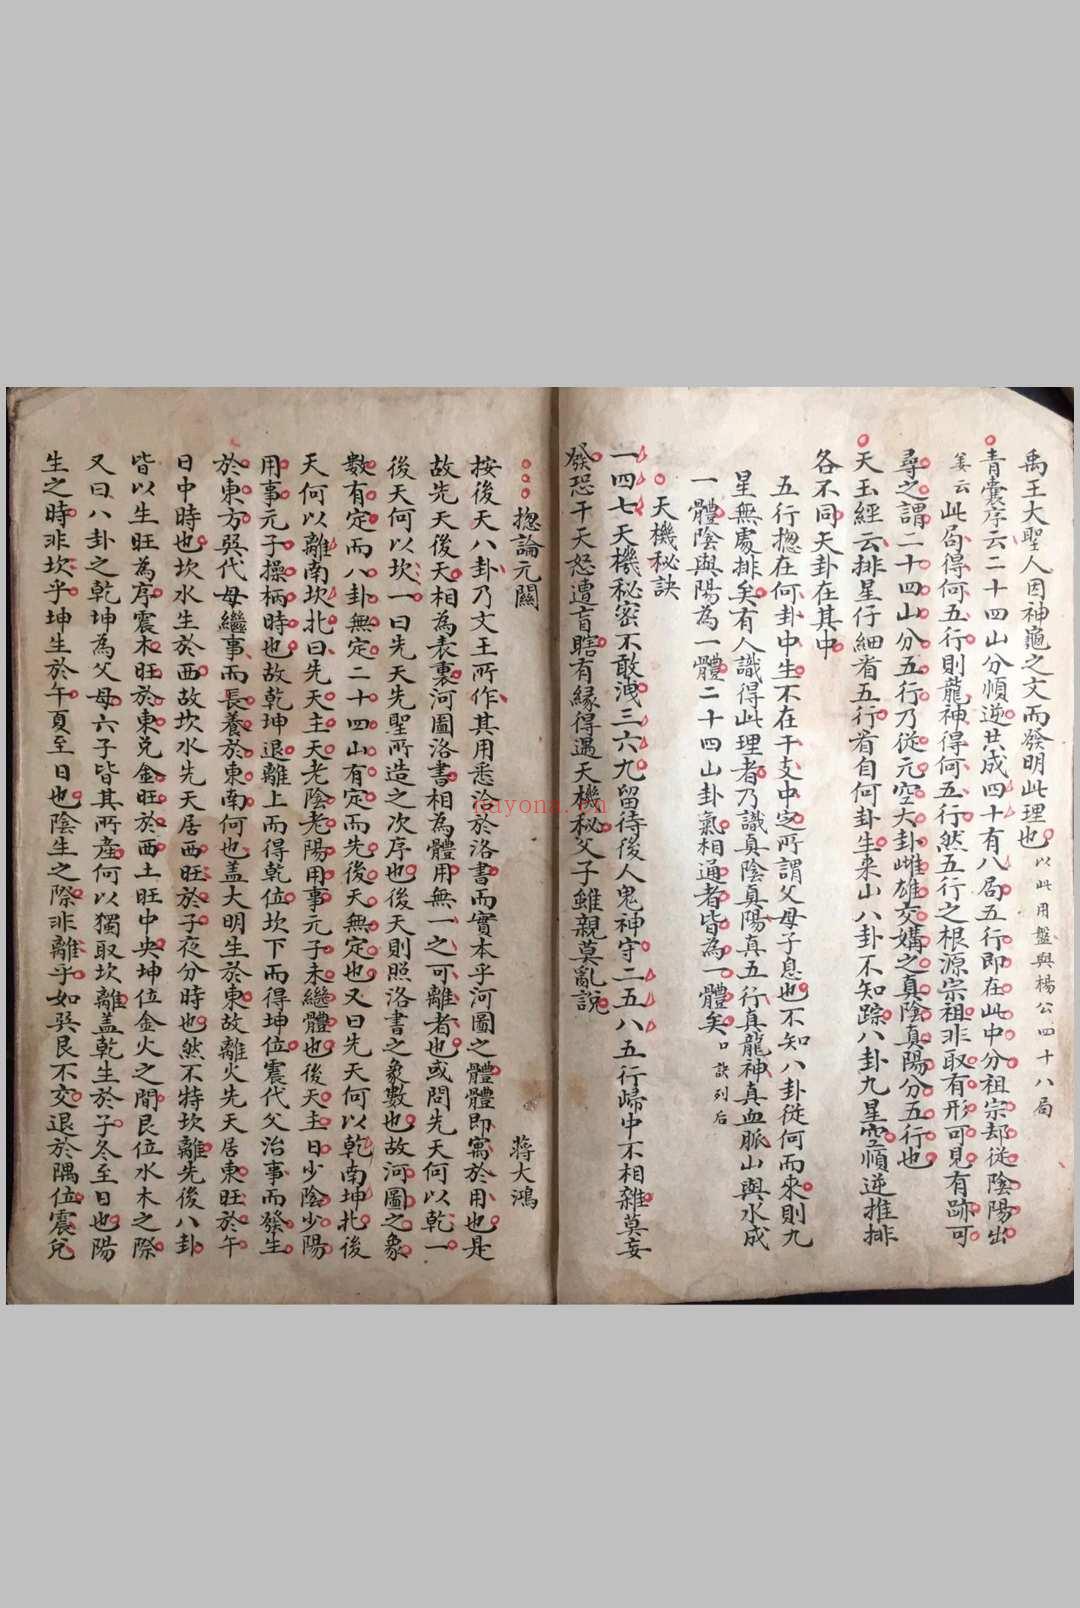 禹王大聖人因神龜之文而發明此理也以此用盤與楊公四十八局
青囊序云二十四山分順逆共成四十有八局五行即在此中分祖宗却從陰陽出
姜云此局得何五行則龍神得何五行然五行之根源宗祖非取有形可見有跡可
尋之謂二十四山分五行乃從元空大卦雌雄交媾之真陰真陽分五行也
天玉經云排星仔細看五行看自何卦生來山八卦不知踪八卦九星空順逆推排
各不同天卦在其中
五行揔在何卦中生不在干支中定所謂父母子息也不知八卦從何而來則九
星無處排矣有人識得此理者乃識真陰真陽真五行真龍神真血脈山與水成
一體陰與陽為一體二十四山卦氣相通者皆為一體矣口訣列后
天機秘訣
一四七天機秘密不敢洩三六九留待後人鬼神守二五八五行歸中不相雜莫妄
發恐干天怒遭盲瞎有緣得遇天機秘父子雖親莫亂說
揔論元關 蔣大鴻
按後天八卦乃文王所作其用悉洽於洛書而實本乎河圖之體體即寓於用也是
故先天後天相為表裏河圖洛書相為體用無一之可離者也或問先天何以乾一
後天何以坎一曰先天先聖所造之次序也後天則照洛書之象數也故河圖之象
數有定而八卦無定二十四山有定而先後天無定也又曰先天何以乾南坤北後
天何以離南坎北曰先天主天老陰老陽用事元子未繼體也後天主日少陰少陽
用事元子操柄時也故乾坤退離上而得乾位坎下而得坤位震代父治事而發生
於東方巽代母繼事而長養於東南何也盖大明生於東故離火先天居東旺於午
日中時也坎水生於西故坎水先天居西旺於子夜分時也然不特坎離先後八卦
皆以生旺為序震木旺於東兌金旺於西土旺中央坤位金火之間艮位水木之際
又曰八卦之乾坤為父母六子皆其所產何以獨取坎離盖乾生於子冬至日也陽
生之時非坎乎坤生於午夏至日也陰生之際非離乎如巽艮不交退於隅位震兌
nayona.cn